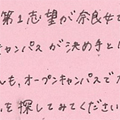 第1志望が奈良女で
キャンパスが決め手と
んも、オープンキャンパスで
を探してみてください